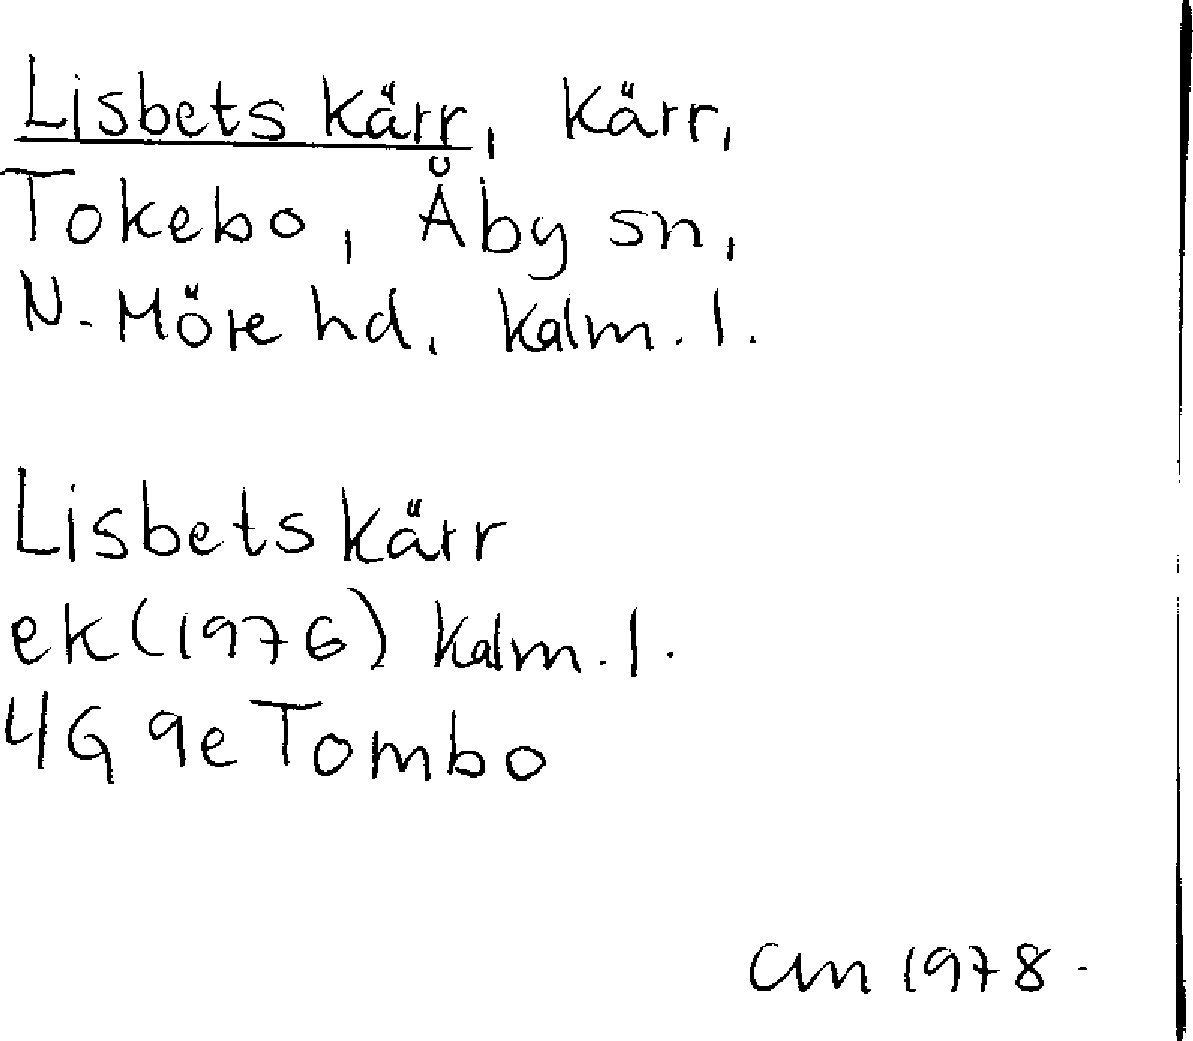 Lisbets kärr, kärr,
Tokebo, Åby sn,
N. Möre hd, Kalm. l.
Lisbets kärr
ek (1976) Kalm. l.
4G 9e Tombo
CLm 1978.